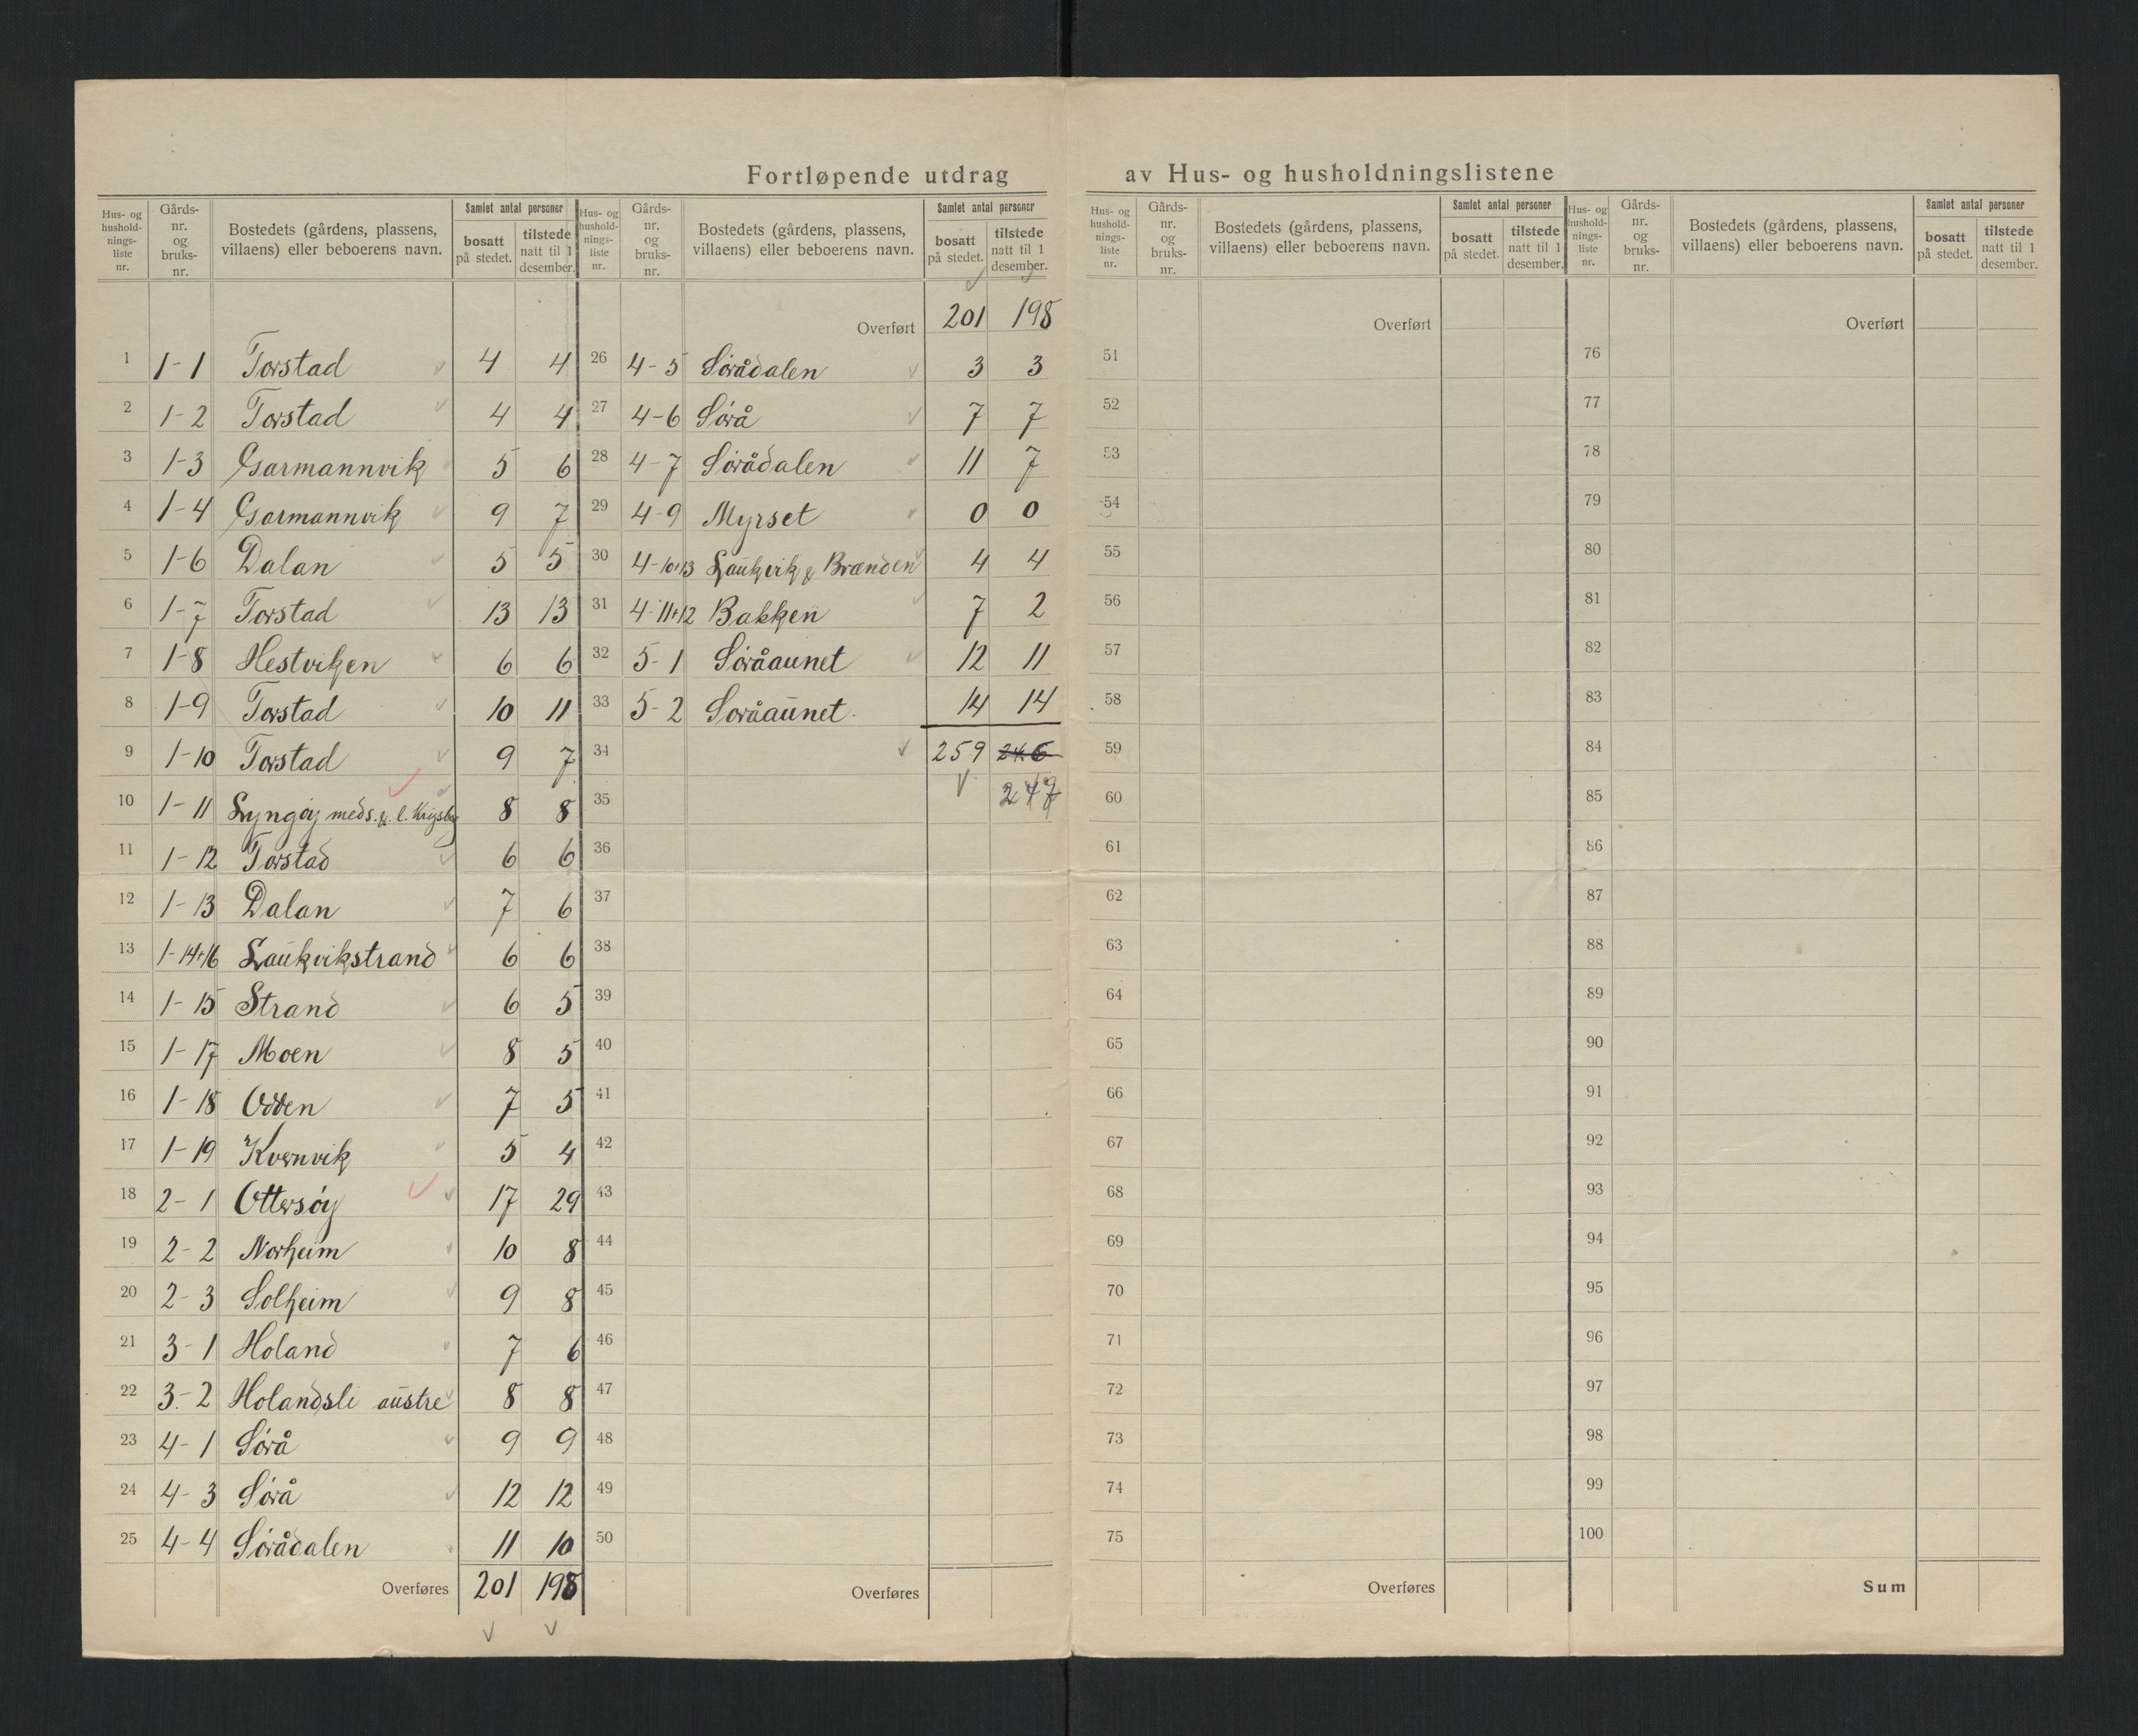 Fortløpende utdrag av Hus- og husholdningslistene
Hus- og hushold- nings- liste nr. Gårds- nr. og bruks- nr. Bostedets (gårdens, plassens, villaens) eller beboerens navn. Samlet antal personer bosatt på stedet. tilstede natt til 1 desember.
1 1-1 Torstad 4 4
2 1-2 Torstad 4 4
3 1-3 Garmannvik 5 6
4 1-4 Garmannvik 9 7
5 1-6 Dalan 5 5
6 1-7 Torstad 13 13
7 1-8 Hestviken 6 6
8 1-9 Torstad 10 11
9 1-10 Torstad 9 7
10 1-11 Lyngøy 8 8
11 1-12 Torstad 6 6
12 1-13 Dalan 7 6
13 1-14+16 Laukvikstrand 6 6
14 1-15 Strand 6 5
15 1-17 Moen 8 5
16 1-18 Odden 7 5
17 1-19 Kvernvik 5 4
18 2-1 Ottersøy 17 29
19 2-2 Norheim 10 8
20 2-3 Solheim 9 8
21 3-1 Holand 7 6
22 3-2 Holandsli austre 8 8
23 4-1 Sørå 9 9
24 4-3 Sørå 12 12
25 4-4 Sørådalen 11 10
Overføres 201 198
Hus- og hushold- nings- liste nr. Gårds- nr. og bruks- nr. Bostedets (gårdens, plassens, villaens) eller beboerens navn. Samlet antal personer bosatt på stedet. tilstede natt til 1 desember.
Overført 201 198
26 4-5 Sørådalen 3 3
27 4-6 Sørå 7 7
28 4-7 Sørådalen 11 7
29 4-9 Myrset 0 0
30 4-10+13 Laukvik & Brænden 4 4
31 4-11+12 Bakken 7 2
32 5-1 Søråaunet 12 11
33 5-2 Søråaunet 14 14
34 259 246
35 247
36
37
38
39
40
41
42
43
44
45
46
47
48
49
50
Overføres
Hus- og hushold- nings- liste nr. Gårds- nr. og bruks- nr. Bostedets (gårdens, plassens, villaens) eller beboerens navn. Samlet antal personer bosatt på stedet. tilstede natt til 1 desember.
Overført
51
52
53
54
55
56
57
58
59
60
61
62
63
64
65
66
67
68
69
70
71
72
73
74
75
Overføres
Hus- og hushold- nings- liste nr. Gårds- nr. og bruks- nr. Bostedets (gårdens, plassens, villaens) eller beboerens navn. Samlet antal personer bosatt på stedet. tilstede natt til 1 desember.
Overført
76
77
78
79
80
81
82
83
84
85
86
87
88
89
90
91
92
93
94
95
96
97
98
99
100
Sum